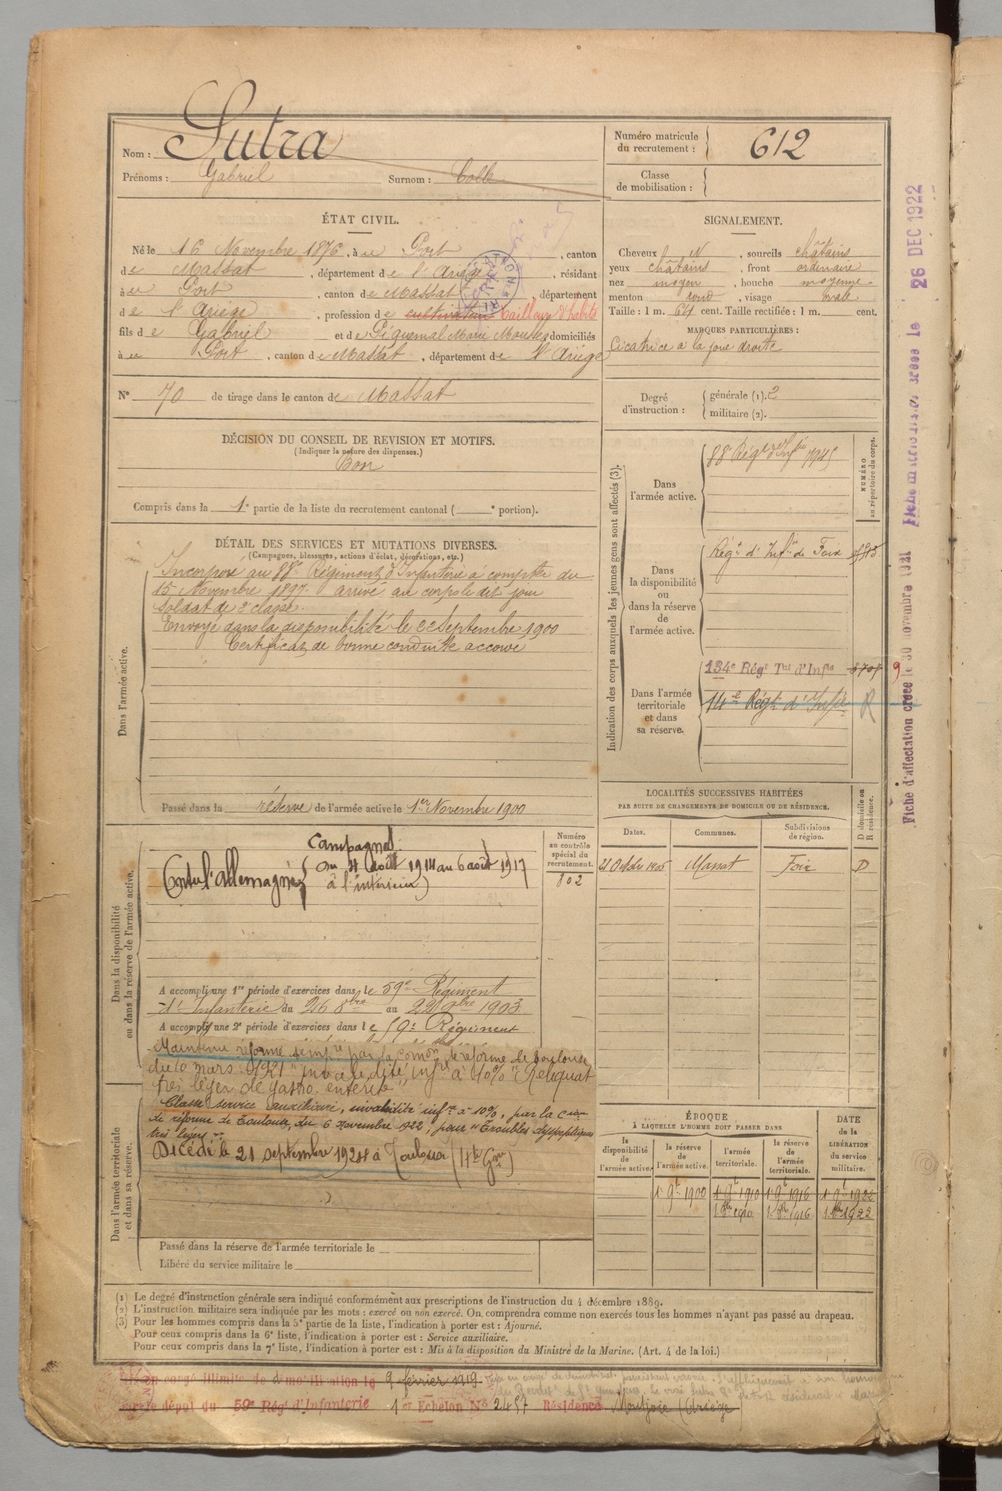 Nom : Sutra
Prénoms : Gabriel Surnom :
Numéro matricule du recrutement : 612
Classe de mobilisation :
ÉTAT CIVIL.
Né le 16 Novembre 1876, à Port, canton
de Massat, département de l'Ariège, résidant
à Port, canton de Massat, département
de l'Ariège, profession de cultivateur Tailleur d'habits
fils de Gabriel et de Piquemal Marie domiciliés
à Port, canton de Massat, département de l'Ariège
N° 70 de tirage dans le canton de Massat
SIGNALEMENT.
Cheveux N, sourcils châtains
yeux châtains, front ordinaire
nez moyen, bouche moyenne
menton rond, visage ovale
Taille : 1 m. 64 cent. Taille rectifiée : 1 m. cent.
MARQUES PARTICULIÈRES :
Cicatrice à la joue droite
Degré d'instruction : générale (1). 2
militaire (2).
DÉCISION DU CONSEIL DE REVISION ET MOTIFS.
(Indiquer la nature des dispenses.)
Bon
Compris dans la 1e partie de la liste du recrutement cantonal ( e portion).
DÉTAIL DES SERVICES ET MUTATIONS DIVERSES.
(Campagnes, blessures, actions d'éclat, décorations, etc.)
Dans l'armée active.
Incorporé au 88e Régiment d'Infanterie à compter du
15 Novembre 1897 arrivé au corps le dit jour
Soldat de 2e classe.
Envoyé dans la disponibilité le 22 Septembre 1900
Certificat de bonne conduite accordé
Passé dans la réserve de l'armée active le 1er Novembre 1900
Indication des corps auxquels les jeunes gens sont affectés (3).
NUMÉRO au répertoire du corps.
Dans l'armée active.
88e Régt d'Infie
Dans la disponibilité ou dans la réserve de l'armée active.
Régt d'Infie de Foix
Dans l'armée territoriale et dans sa réserve.
134e Régt Tal d'Infie
14e Régt d'Infie R
LOCALITÉS SUCCESSIVES HABITÉES
PAR SUITE DE CHANGEMENTS DE DOMICILE OU DE RÉSIDENCE.
Dates. Communes. Subdivisions de région. D domicile ou R résidence.
Massat Foix D
Dans la disponibilité ou dans la réserve de l'armée active.
Numéro au contrôle spécial du recrutement.
802
Campagne
Contre l'Allemagne { du 4 août 1914 au 6 août 1917
à l'intérieur
A accompli une 1re période d'exercices dans le 59e Régiment
d'Infanterie du 26 8bre au 22 9bre 1903
A accompli une 2e période d'exercices dans le 59e Régiment
Maintenu réformé temp.re par la comon de réforme de Toulouse
du 10 mars 1921 pour invalidité infre à 10% "Reliquat
très léger de gastro entérite"
Dans l'armée territoriale et dans sa réserve.
Classé service auxiliaire, invalidité infre à 10%, par la Con
de réforme de Toulouse, du 6 novembre 1922, pour "Troubles dyspeptiques
très légers".
Décédé le 21 septembre 1924 à Toulouse (Hte Gne)
Passé dans la réserve de l'armée territoriale le
Libéré du service militaire le
ÉPOQUE
À LAQUELLE L'HOMME DOIT PASSER DANS
la disponibilité de l'armée active. la réserve de l'armée active. l'armée territoriale. la réserve de l'armée territoriale.
DATE de la LIBÉRATION du service militaire.
1 9bre 1900 1 9bre 1910 1 9bre 1916 1 9bre 1922
1 8bre 1910 1 8bre 1916 1 8bre 1922
(1) Le degré d'instruction générale sera indiqué conformément aux prescriptions de l'instruction du 4 décembre 1889.
(2) L'instruction militaire sera indiquée par les mots : exercé ou non exercé. On comprendra comme non exercés tous les hommes n'ayant pas passé au drapeau.
(3) Pour les hommes compris dans la 5e partie de la liste, l'indication à porter est : Ajourné.
Pour ceux compris dans la 6e liste, l'indication à porter est : Service auxiliaire.
Pour ceux compris dans la 7e liste, l'indication à porter est : Mis à la disposition du Ministre de la Marine. (Art. 4 de la loi.)
congé illimité de démobilisation le 9 février 1919
dépôt du 59e Rég. d'Infanterie 1er Echelon N° 2457 Résidence Montjoie (Ariège
Fiche d'affectation créée le 30 novembre 1921
Fiche matriculaire créée le 26 DEC 1922